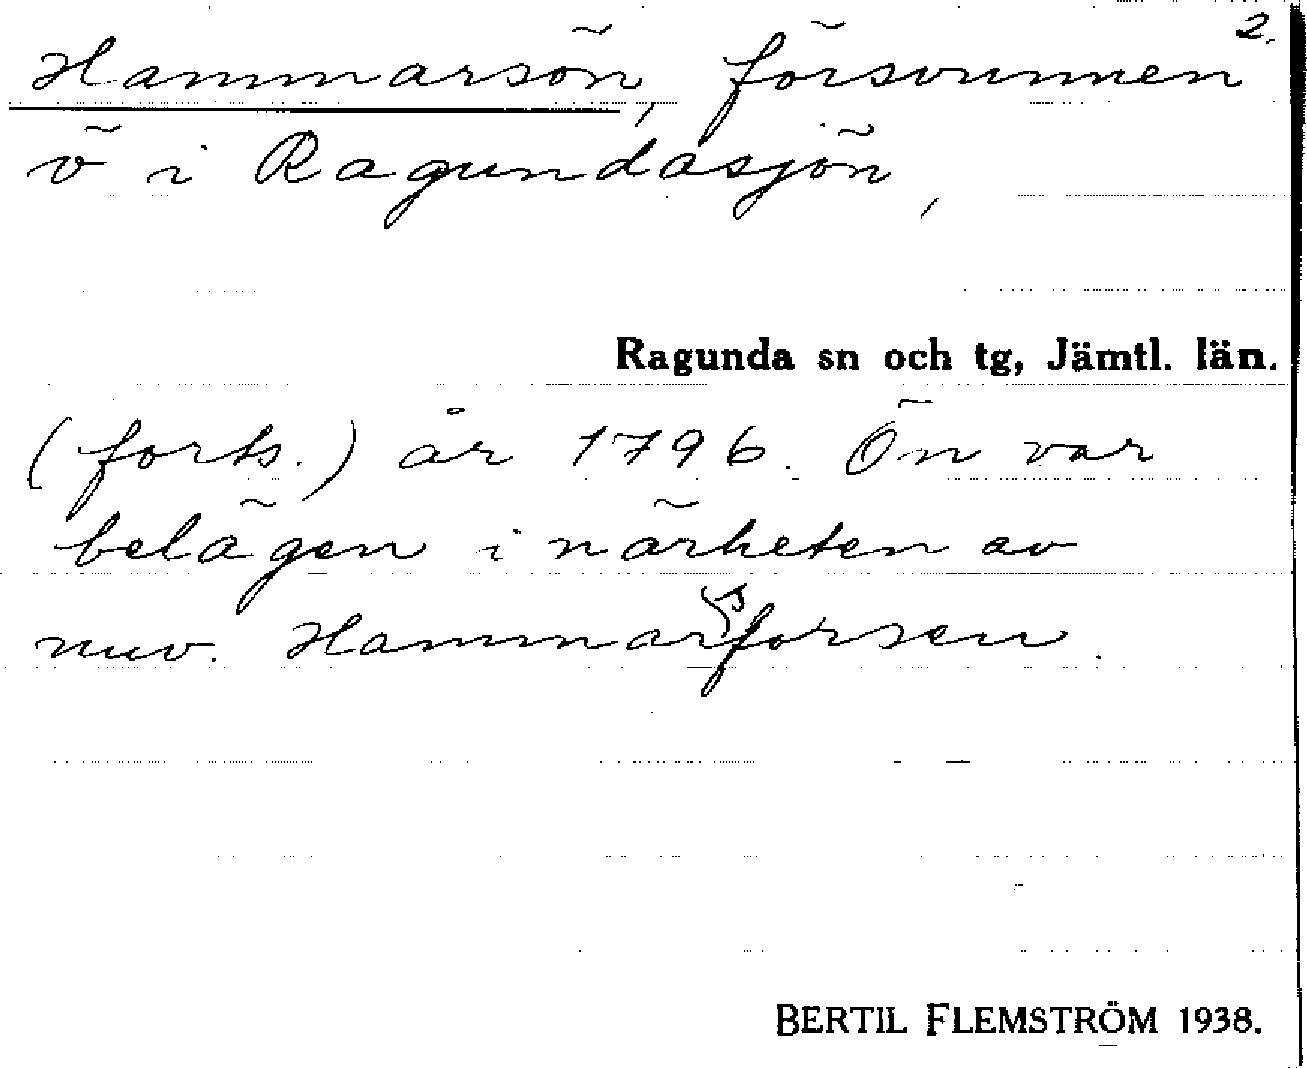 2.
Hammarsön, försvunnen
ö i Ragundasjön,
Ragunda sn och tg, Jämtl. län.
(forts.) år 1796. Ön var
belägen i närheten av
nuv. Hammarsforsen.
BERTIL FLEMSTRÖM 1938.